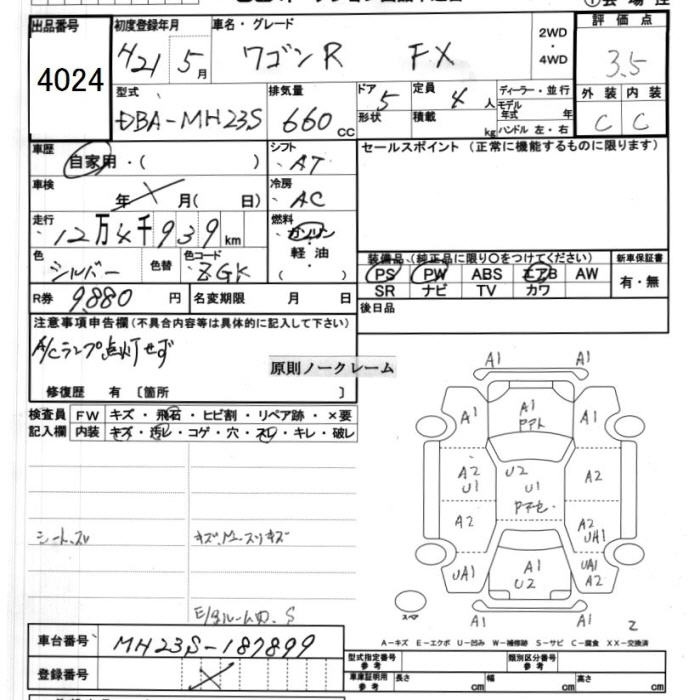 出品番号 初度登録年月 車名・グレード 2WD・4WD 評価点
4024 H21 5月 ワゴンR FX 3.5
型式 排気量 ドア 定員 ディーラー・並行 外装 内装
DBA-MH23S 660cc 5 4人 モデル年式 年 C C
形状 積載 kg ハンドル 左・右
車歴 シフト セールスポイント(正常に機能するものに限ります)
自家用・( ) AT
車検 冷房
年 月( 日) AC
走行 燃料
12万4千939km ガソリン・軽油・( )
色 色替 色コード 装備品(純正品に限り○をつけてください) 新車保証書
シルバー Z6K PS PW ABS エアB AW 有・無
SR ナビ TV カワ
R券 9,880円 名変期限 月 日 後日品
注意事項申告欄(不具合内容等は具体的に記入して下さい)
A/Cランプ点灯せず
原則ノークレーム
修復歴 有 〔箇所 〕
検査員 FW キズ・飛石・ヒビ割・リペア跡・×要
記入欄 内装 キズ・汚レ・コゲ・穴・スレ・キレ・破レ
シートスレ
S
A1 A1
A1 A1 A1
A2 U1 U2 U1 A2
A2 A2 UA1
UA1 A1 U2 UA1 A2
A1 A1
スペア 2
A-キズ E-エクボ U-凹み W-補修跡 S-サビ C-腐食 XX-交換済
車台番号 MH23S-187899
登録番号
型式指定番号 参考 類別区分番号 参考
車庫証明用 参考 長さ cm 幅 cm 高さ cm